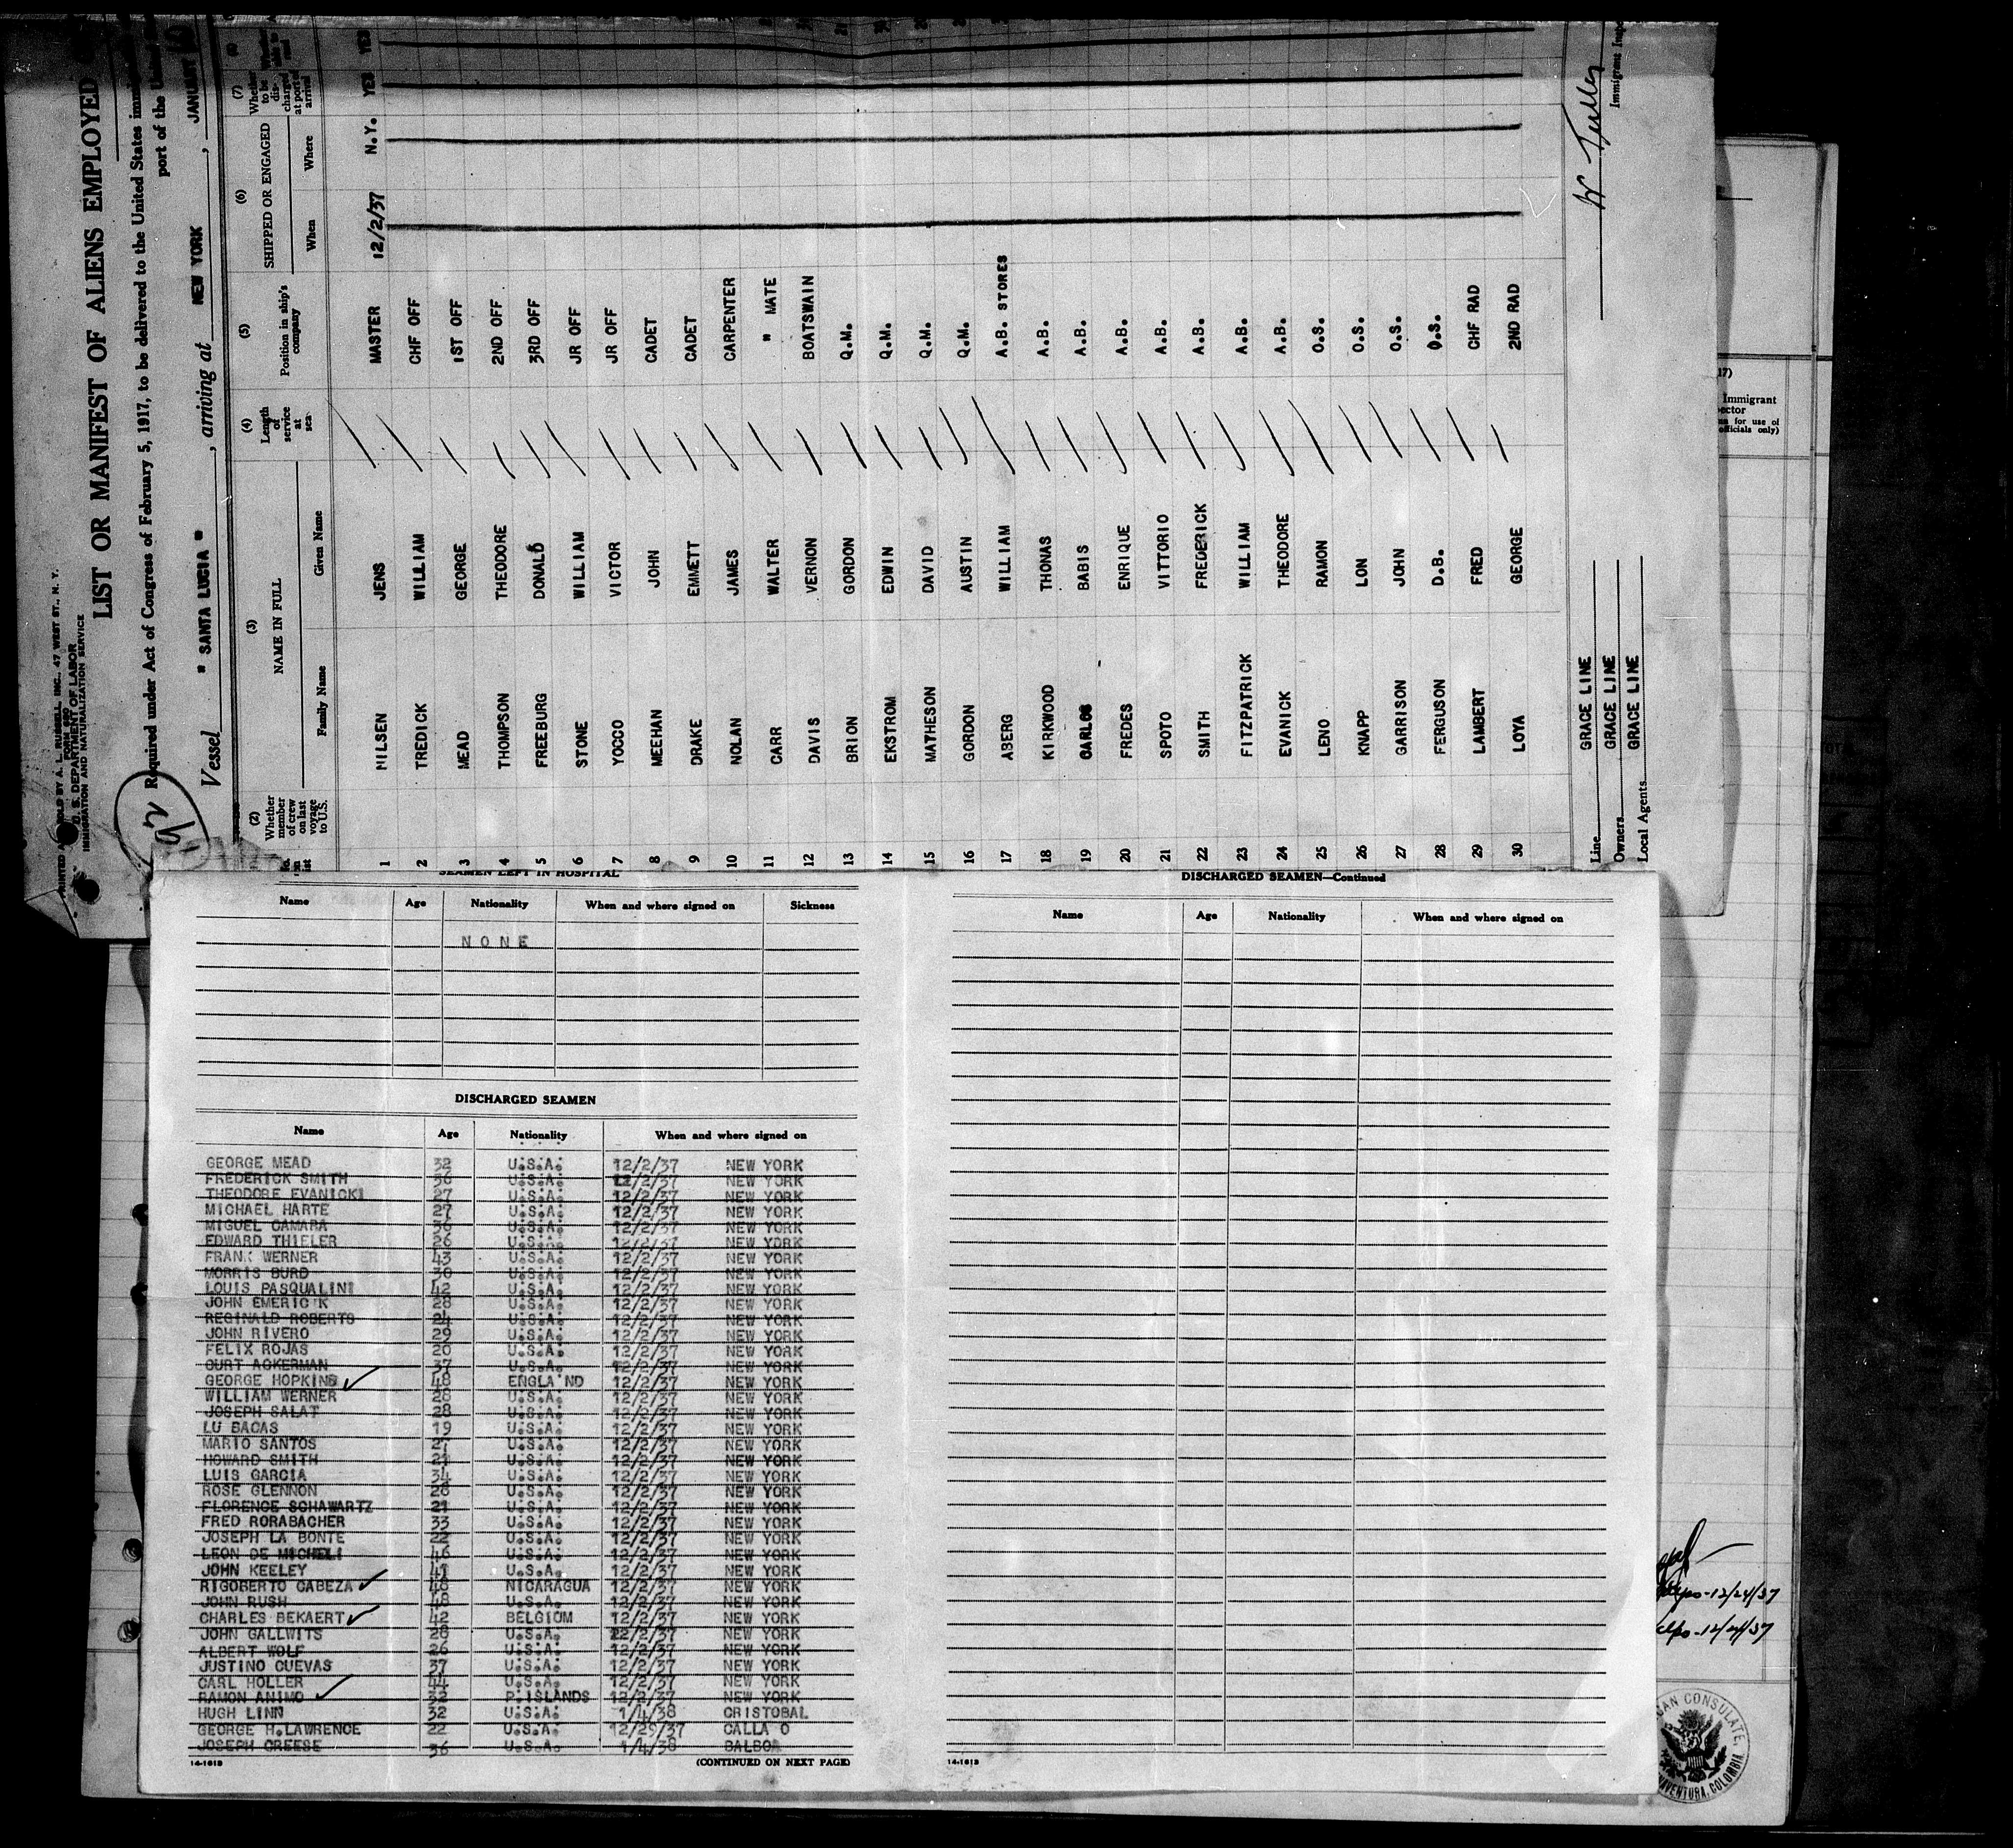 PRINTED AND SOLD BY A. L. RUSSELL, INC., 47 WEST ST., N. Y.
FORM 680
U. S. DEPARTMENT OF LABOR
IMMIGRATION AND NATURALIZATION SERVICE
LIST OR MANIFEST OF ALIENS EMPLOYED
Required under Act of Congress of February 5, 1917, to be delivered to the United States
port of the
Vessel " SANTA LUCIA " , arriving at NEW YORK , JANUARY
(2) Whether member of crew on last voyage to U.S. (3) NAME IN FULL Family Name Given Name (4) Length of service at sea (5) Position in ship's company (6) SHIPPED OR ENGAGED When Where (7) Whether to be discharged at port of arrived
1 NILSEN JENS MASTER 12/2/37 N.Y. YES YES
2 TREDICK WILLIAM CHF OFF
3 MEAD GEORGE 1ST OFF
4 THOMPSON THEODORE 2ND OFF
5 FREEBURG DONALD 3RD OFF
6 STONE WILLIAM JR OFF
7 YOCCO VICTOR JR OFF
8 MEEHAN JOHN CADET
9 DRAKE EMMETT CADET
10 NOLAN JAMES CARPENTER
11 CARR WALTER " MATE
12 DAVIS VERNON BOATSWAIN
13 BRION GORDON Q.M.
14 EKSTROM EDWIN Q.M.
15 MATHESON DAVID Q.M.
16 GORDON AUSTIN Q.M.
17 ABERG WILLIAM A.B. STORES
18 KIRKWOOD THONAS A.B.
19 CARLOS BABIS A.B.
20 FREDES ENRIQUE A.B.
21 SPOTO VITTORIO A.B.
22 SMITH FREDERICK A.B.
23 FITZPATRICK WILLIAM A.B.
24 EVANICK THEODORE A.B.
25 LENO RAMON O.S.
26 KNAPP LON O.S.
27 GARRISON JOHN O.S.
28 FERGUSON D.B. O.S.
29 LAMBERT FRED CHF RAD
30 LOYA GEORGE 2ND RAD
Line GRACE LINE
Owners GRACE LINE
Local Agents GRACE LINE
Immigrant
SEAMEN LEFT IN HOSPITAL
Name Age Nationality When and where signed on Sickness
NONE
DISCHARGED SEAMEN
Name Age Nationality When and where signed on
GEORGE MEAD 32 U.S.A. 12/2/37 NEW YORK
FREDERICK SMITH 36 U.S.A. 12/2/37 NEW YORK
THEODORE EVANICKI 27 U.S.A. 12/2/37 NEW YORK
MICHAEL HARTE 27 U.S.A. 12/2/37 NEW YORK
MIGUEL CAMARA 36 U.S.A. 12/2/37 NEW YORK
EDWARD THIELER 26 U.S.A. 12/2/37 NEW YORK
FRANK WERNER 43 U.S.A. 12/2/37 NEW YORK
MORRIS BURD 30 U.S.A. 12/2/37 NEW YORK
LOUIS PASQUALINI 42 U.S.A. 12/2/37 NEW YORK
JOHN EMERICK 28 U.S.A. 12/2/37 NEW YORK
REGINALD ROBERTS 24 U.S.A. 12/2/37 NEW YORK
JOHN RIVERO 29 U.S.A. 12/2/37 NEW YORK
FELIX ROJAS 20 U.S.A. 12/2/37 NEW YORK
CURT ACKERMAN 37 U.S.A. 12/2/37 NEW YORK
GEORGE HOPKINS 48 ENGLA ND 12/2/37 NEW YORK
WILLIAM WERNER 28 U.S.A. 12/2/37 NEW YORK
JOSEPH SALAT 28 U.S.A. 12/2/37 NEW YORK
LU BACAS 19 U.S.A. 12/2/37 NEW YORK
MARIO SANTOS 27 U.S.A. 12/2/37 NEW YORK
HOWARD SMITH 21 U.S.A. 12/2/37 NEW YORK
LUIS GARCIA 34 U.S.A. 12/2/37 NEW YORK
ROSE GLENNON 28 U.S.A. 12/2/37 NEW YORK
FLORENCE SCHAWARTZ 21 U.S.A. 12/2/37 NEW YORK
FRED RORABACHER 33 U.S.A. 12/2/37 NEW YORK
JOSEPH LA BONTE 22 U.S.A. 12/2/37 NEW YORK
LEON DE MICHELI 46 U.S.A. 12/2/37 NEW YORK
JOHN KEELEY 41 U.S.A. 12/2/37 NEW YORK
RIGOBERTO CABEZA 48 NICARAGUA 12/2/37 NEW YORK
JOHN RUSH 48 U.S.A. 12/2/37 NEW YORK
CHARLES BEKAERT 42 BELGIOM 12/2/37 NEW YORK
JOHN GALLWITS 28 U.S.A. 12/2/37 NEW YORK
ALBERT WOLF 26 U.S.A. 12/2/37 NEW YORK
JUSTINO CUEVAS 37 U.S.A. 12/2/37 NEW YORK
CARL HOLLER 44 U.S.A. 12/2/37 NEW YORK
RAMON ANIMO 32 P.ISLANDS 12/2/37 NEW YORK
HUGH LINN 32 U.S.A. 1/4/38 CRISTOBAL
GEORGE H.LAWRENCE 22 U.S.A. 12/29/37 CALLA O
JOSEPH CREESE 36 U.S.A. 1/4/38 BALBOA
14-1613 (CONTINUED ON NEXT PAGE)
DISCHARGED SEAMEN—Continued
Name Age Nationality When and where signed on
14-1613
17)
Immigrant
for use of
officials only)
12/24/37
CONSULATE,
COLOMBIA